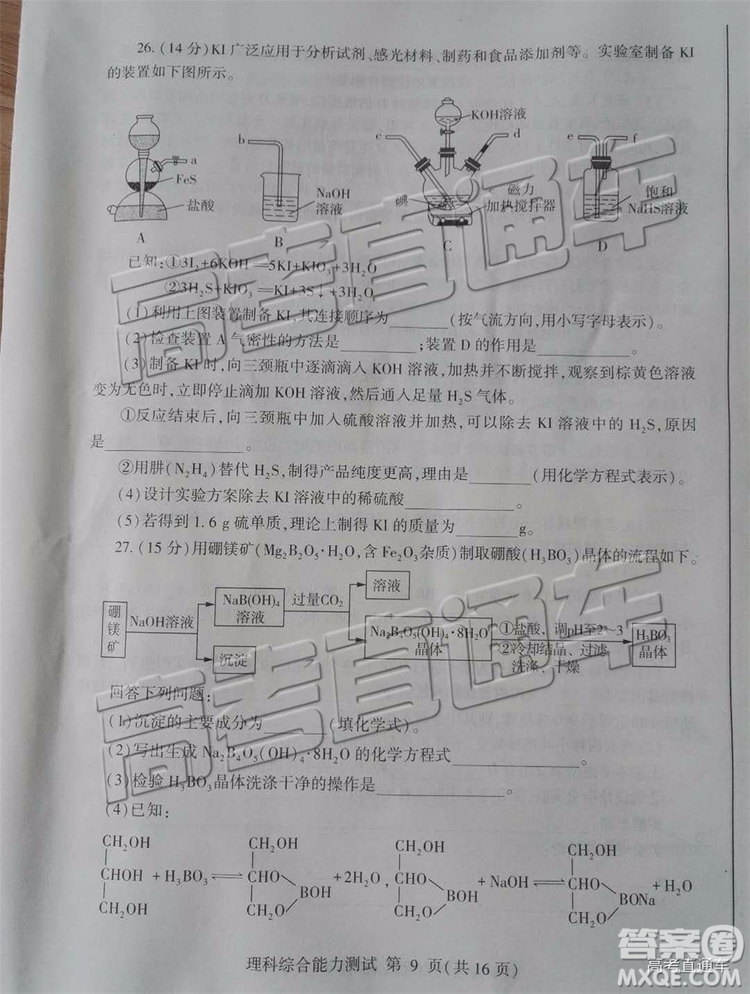 26. (14 分) KI 广泛应用于分析试剂、感光材料、制药和食品添加剂等。实验室制备 KI
的装置如下图所示。
KOH溶液
a
b
c
d
e
f
FeS
盐酸
NaOH
溶液
碘
磁力
加热搅拌器
饱和
NaHS溶液
A
B
C
D
已知:①3I₂+6KOH=5KI+KIO₃+3H₂O
②3H₂S+KIO₃=KI+3S↓+3H₂O
(1)利用上图装置制备 KI,其连接顺序为________(按气流方向,用小写字母表示)。
(2)检查装置 A 气密性的方法是________;装置 D 的作用是________。
(3)制备 KI 时,向三颈瓶中逐滴滴入 KOH 溶液,加热并不断搅拌,观察到棕黄色溶液
变为无色时,立即停止滴加 KOH 溶液,然后通入足量 H₂S 气体。
①反应结束后,向三颈瓶中加入硫酸溶液并加热,可以除去 KI 溶液中的 H₂S,原因
是________。
②用肼(N₂H₄)替代 H₂S,制得产品纯度更高,理由是________(用化学方程式表示)。
(4)设计实验方案除去 KI 溶液中的稀硫酸________。
(5)若得到 1.6 g 硫单质,理论上制得 KI 的质量为________g。
27. (15 分)用硼镁矿(Mg₂B₂O₅·H₂O,含 Fe₂O₃ 杂质)制取硼酸(H₃BO₃)晶体的流程如下。
硼镁矿
NaOH溶液
NaB(OH)₄
溶液
沉淀
过量CO₂
溶液
Na₂B₄O₅(OH)₄·8H₂O
晶体
①盐酸、调pH至2~3
②冷却结晶、过滤
洗涤、干燥
H₃BO₃
晶体
回答下列问题:
(1)沉淀的主要成分为________(填化学式)。
(2)写出生成 Na₂B₄O₅(OH)₄·8H₂O 的化学方程式________。
(3)检验 H₃BO₃晶体洗涤干净的操作是________。
(4)已知:
CH₂OH CH₂OH CH₂OH CH₂OH
CHOH + H₃BO₃ ⇌ CHO BOH + 2H₂O, CHO BOH + NaOH ⇌ CHO BONa + H₂O
CH₂OH CH₂O CH₂O CH₂O
理科综合能力测试 第 9 页(共 16 页)
高考直通车
高考直通车
答案圈
高考直通车
MXQE.COM